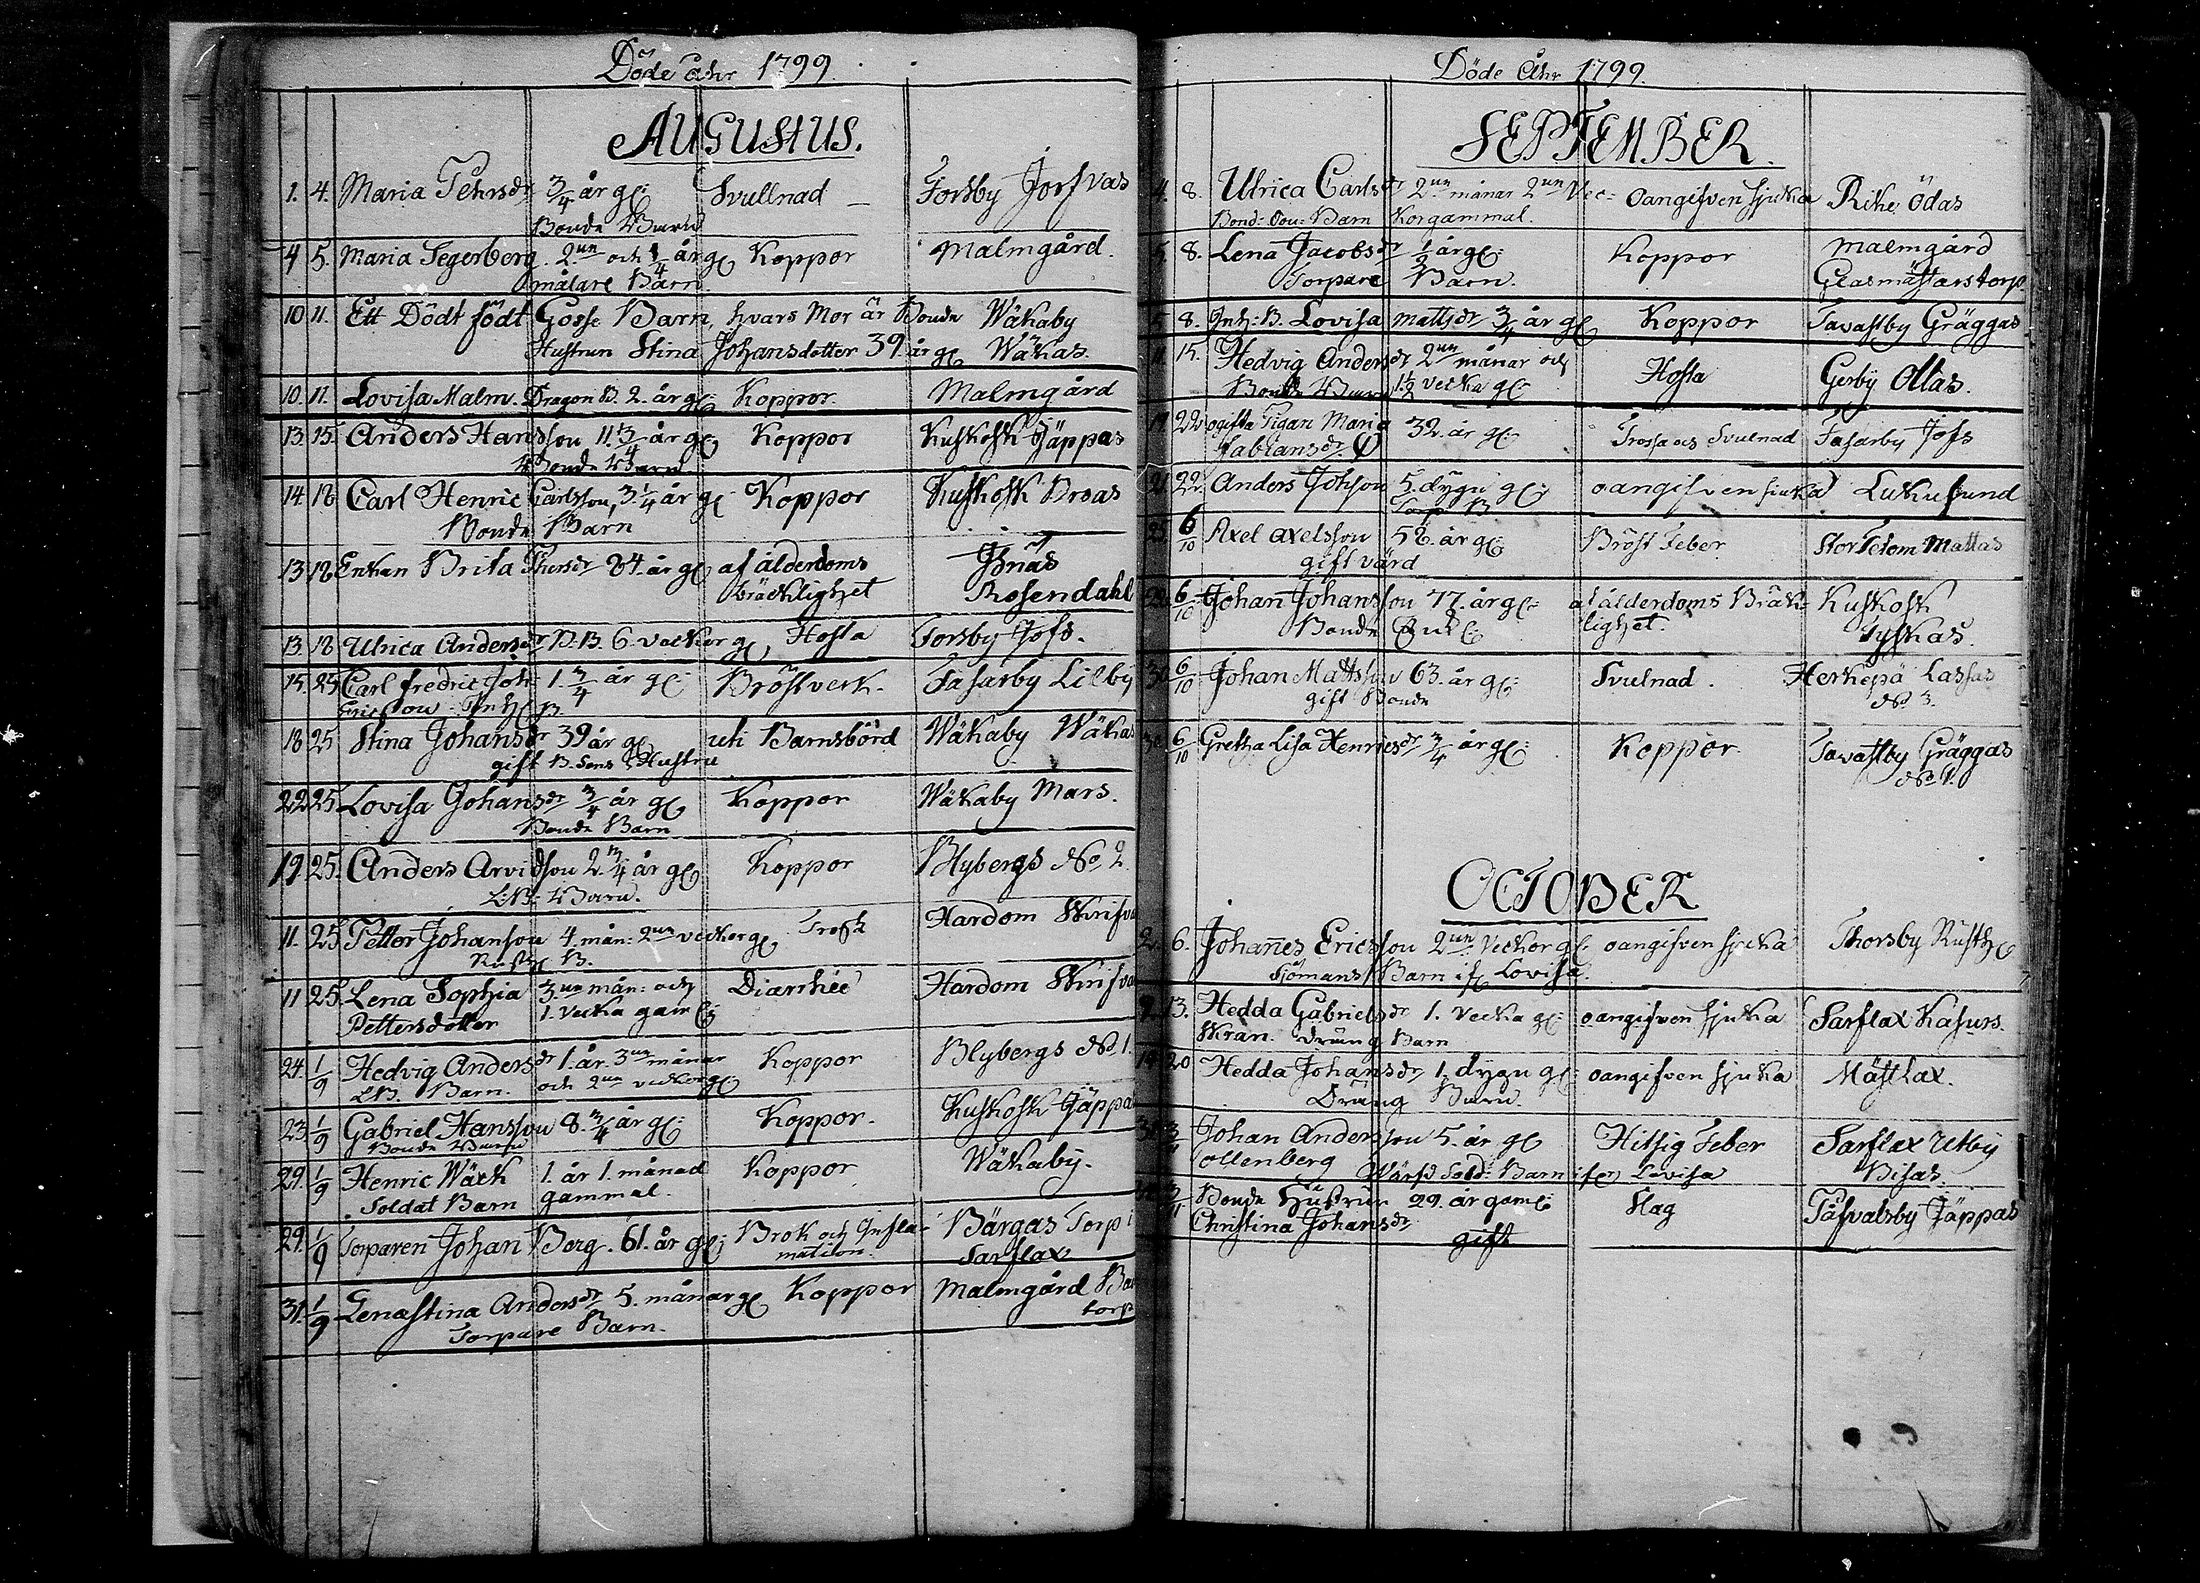 Döde åhr 1799.
AUGUSTUS.
1. 4. Maria Pehrsdr 3/4 år gl: Svullnad Forsby Jorfvas
Bonde Barn
4 5. Maria Segerberg. 2un och 1/4 år gl Koppor Malmgård.
målare Barn.
10 11. Ett Dödt födt Gosse Barn, hvars Mor är Bonde Wäkaby
Hustrun Stina Johansdotter 39 år gl Wäkas.
10. 11. Lovisa Malm. Dragon B. 2. år gl: Koppor. Malmgård
13. 15. Anders Hansson 11. 3/4 år gl: Koppor Kuskosk Jäppas
Bonde Barn
14. 18 Carl Henric Carlsson, 3 1/4 år gl: Koppor Kuskosk Broas
Bonde Barn
13. 18 Enkan Brita Thersdr 84. år gl af ålderdoms Isnäs
bräcklighet Rosendahl
13. 18 Ulrica Andersdr B. B. 6. veckor gl, Hosta Forsby Jofs.
15. 25 Carl Fredric Joh: 1. 3/4 år gl: Bröstverk. Fasarby Lilby
Ericsson Inh: B
18 25 Stina Johansdr 39 år gl uti Barnsbörd Wäkaby Wäkas
gift B. Sons Hustru
22. 25. Lovisa Johansdr 3/4 år gl Koppor Wäkaby Mars.
Bonde Barn
19. 25. Anders Arvidsson 2. 3/4 år gl Koppor Blybergs No. 2
L:B: Barn.
11. 25 Petter Johansson 4. mån: 2un veckor gl Trosk Hardom Skrifva
Rusth B.
11 25. Lena Sophia 3.un mån: och Diarrhée Hardom Skrifva
Pettersdotter 1. Vecka gam l:
24. 1/9 Hedvig Andersdr 1. år. 3un månar Koppor Blybergs No. 1.
L:B. Barn. och 2un veckor gl
23. 1/9 Gabriel Hansson 8. 3/4 år gl: Koppor. Kuskosk Jäppa
Bonde Barn
29. 1/9 Henric Wäck 1. år 1. månad Koppor Wäkaby.
Soldat Barn gammal.
29. 1/9 Torparen Johan Borg. 61. år gl: Brok och Infla- Bärgas Torp i
mation. Sarflax
31. 1/9 Lenastina Andersdr 5. månar gl Koppor Malmgård
Torpare Barn. torp
Döde åhr 1799.
SEPTEMBER.
4. 8. Ulrica Carlsdr 2un månar 2un Vec- oangifven sjuka Rike Ödas
Bond: Barn kor gammal.
5. 8. Lena Jacobsdr 1/2 år gl: Koppor Malmgård
Torpare Barn. Glasmästarstorp
5 8. Inh: B. Lovisa Mattsdr 3/4 år gl Koppor Tavastby Gräggas
Hedvig Andersdr 2un månar och Hosta Gerby Ollas.
Bonde Barn 1.1/2 vecka gl:
22 ogifta Pigan Maria 32. år gl: Frossa och Svulnad Fasarby Jofs
Fabiansdr
21 22. Anders Johsson 5. dygn gl: oangifven siuka Lukusund
Torp: B
25. 6/10 Axel Axelsson 52. år gl: Bröst Feber Stor Tetom Mattas
gift värd
6/10 Johan Johansson 77. år gl: af ålderdoms Bräk- Kuskosk
Bonde lighet. Tyskas.
30 6/10 Johan Mattsson 63. år gl: Svulnad. Herkepä Lassas
gift Bonde No. 3.
30 6/10 Gretha Lisa Henricsdr 3/4 år gl: Koppor Tavastby Gräggas
No. 1.
OCTOBER
2. 6. Johannes Ericsson 2un: Veckor gl: oangifven sjuka Thorsby Rusth
Sjömans Barn if Lovisa.
9. 13. Hedda Gabrielsdr 1. Vecka gl: oangifven sjuka Sarflax Kasurs.
dräng Barn
20 Hedda Johansdr 1. dygn gl: oangifven sjuka Mästlax.
Dräng Barn.
Johan Andersson 5. år gl Hitsig Feber Sarflax Utby
ollenberg Wärfd Sold: Barn ifrn Lovisa Bisas.
Bonde Hustrun 29. år gaml: Slag Täfvalsby Jäppas
Christina Johansdr gift